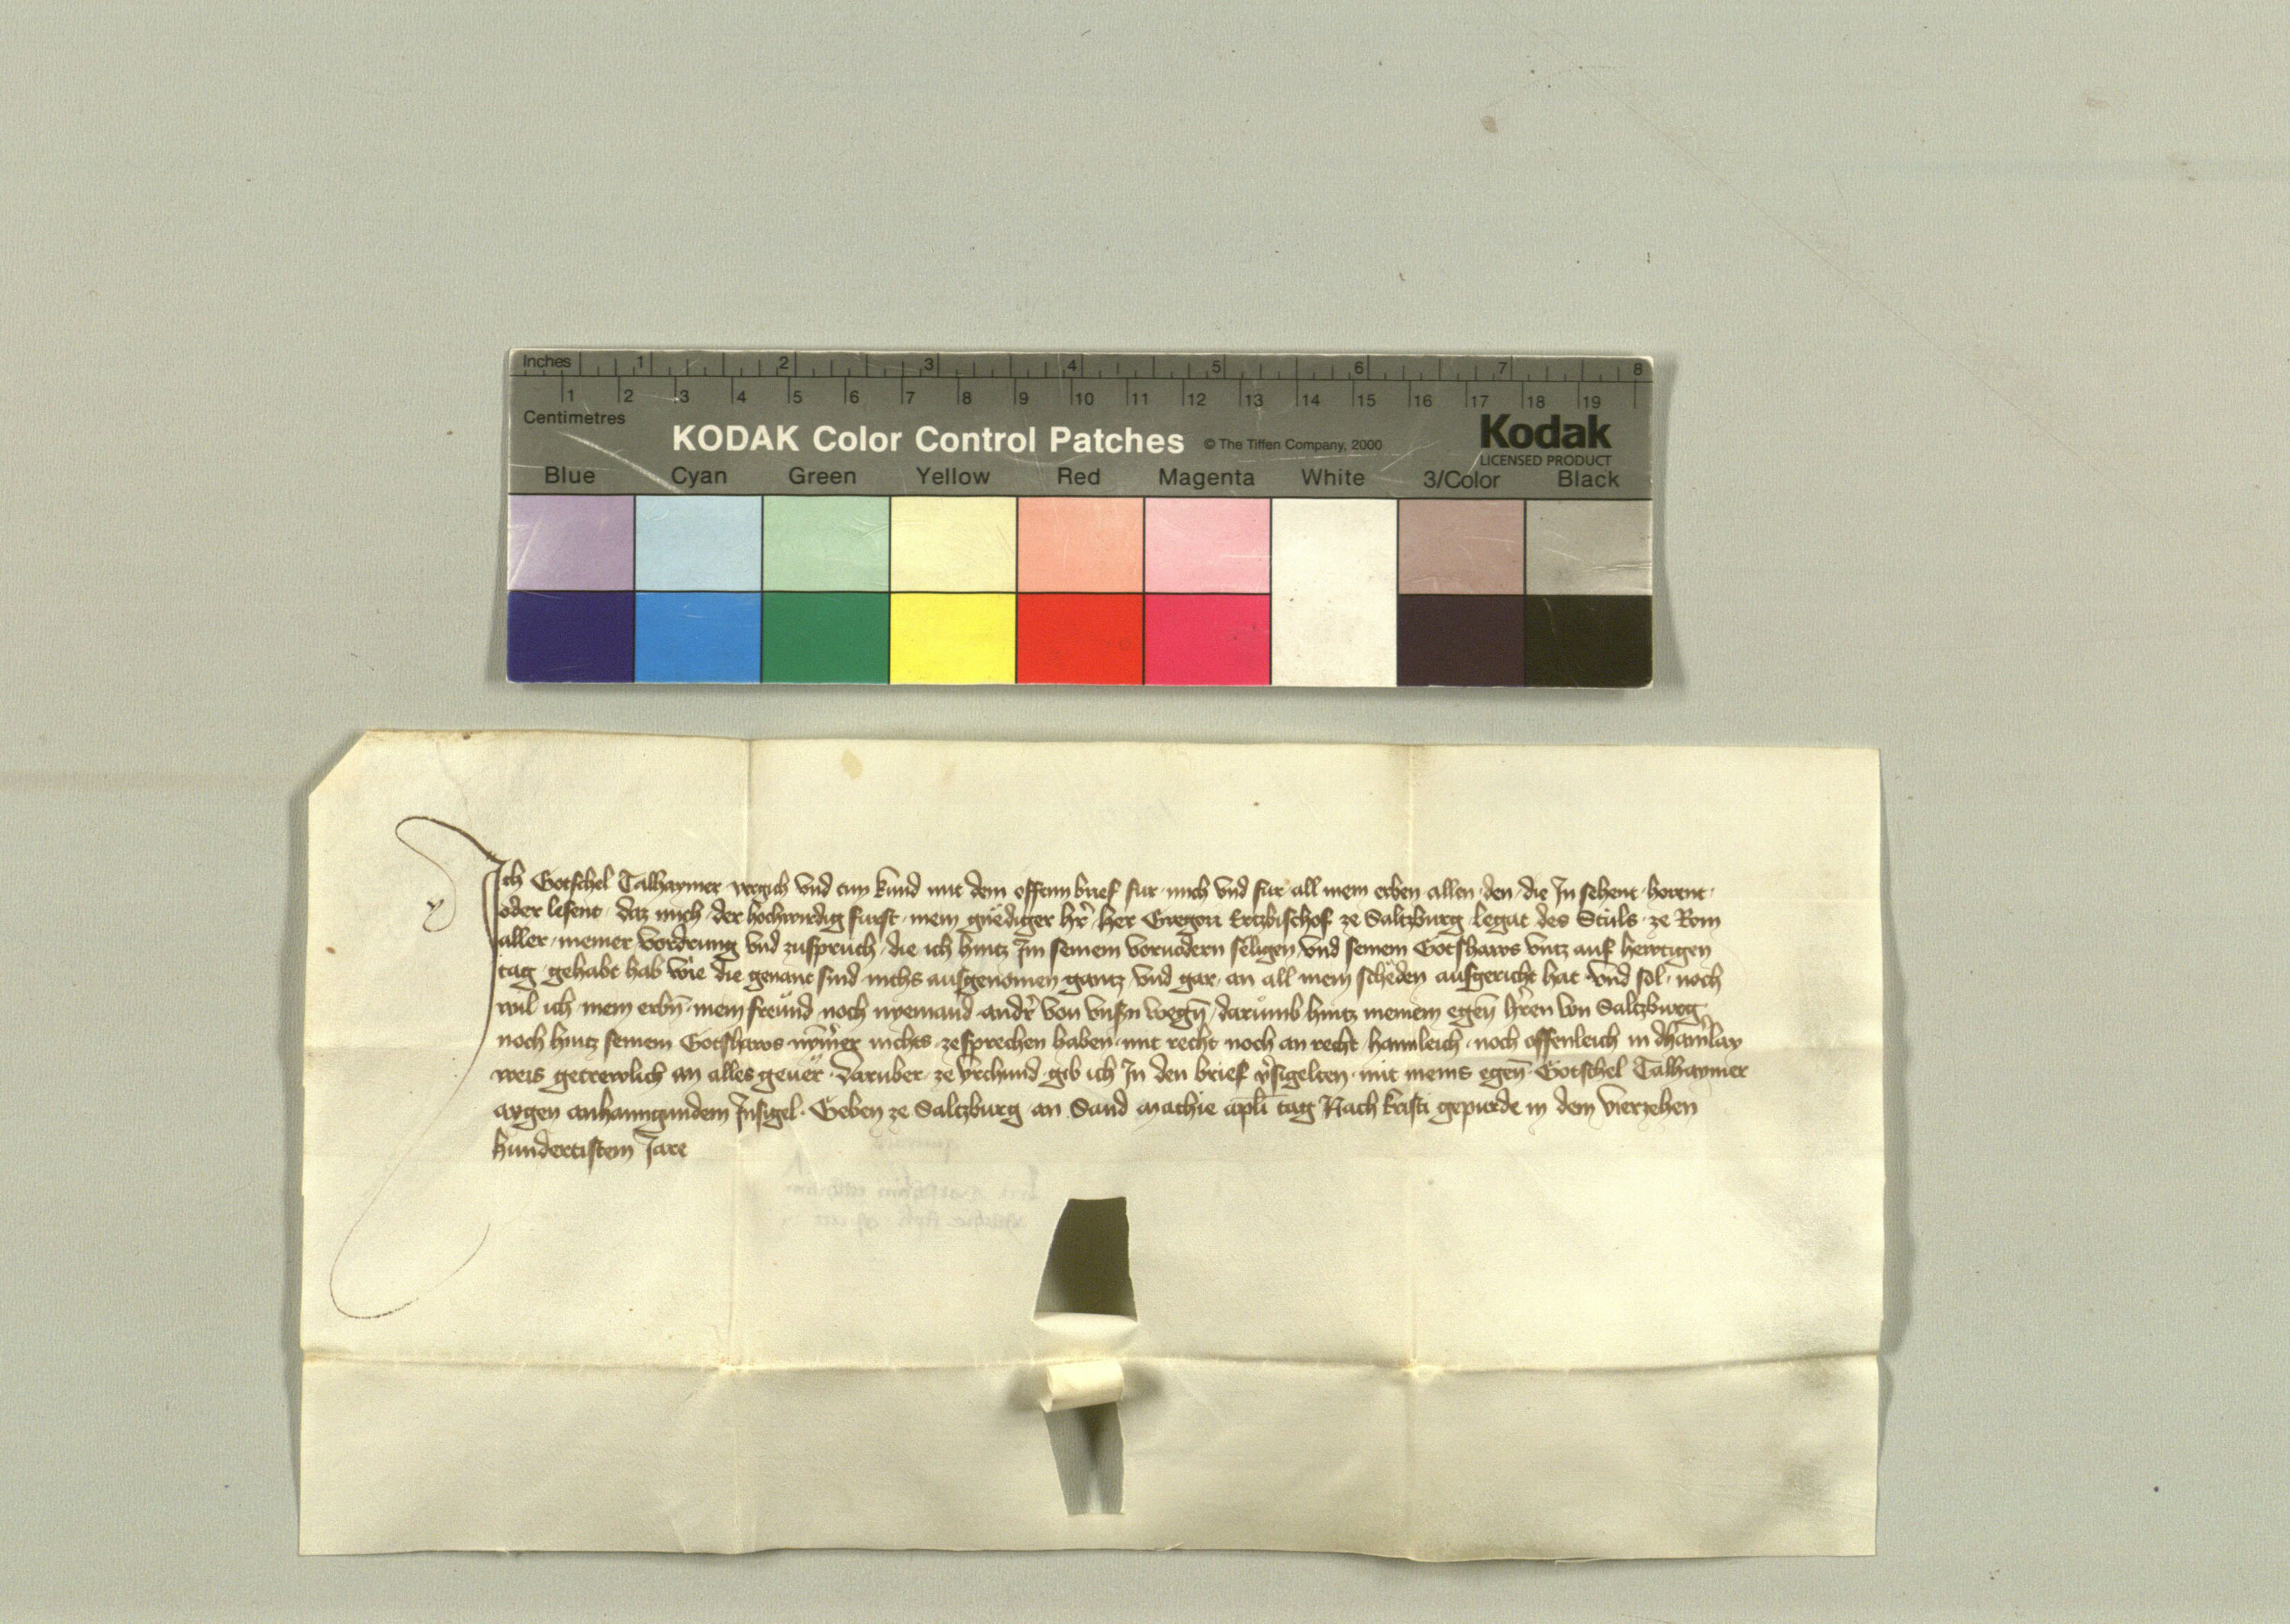 Inches 1 2 3 4 5 6 7 8
1 2 3 4 5 6 7 8 9 10 11 12 13 14 15 16 17 18 19
Centimetres
KODAK Color Control Patches © The Tiffen Company, 2000 Kodak
LICENSED PRODUCT
Blue Cyan Green Yellow Red Magenta White 3/Color Black
Ich Gotschel Talhaymer vergich vnd tun kund mit dem offenn brief fur mich vnd fur all mein erben allen den die In sehent horent
oder lesent daz mich der hochwirdig furst mein gnediger hr̄ her Gregori Ertzbischof ze Saltzburg legat des Stuls ze Rom
aller meiner vordrung vnd zuspruch die ich hintz Im seinem voruodern seligen vnd seinem Gotshaws vntz auf hewtigen
tag gehabt hab wie die genant sind nichs ausgenomen gantz vnd gar an all mein scheden ausgericht hat vnd sol noch
wil ich mein erbn̄ mein freund noch nyemand andr̄ von vnsn wegn̄ darumb hintz meinem egen̄ hr̄en von Saltzburg
noch hintz seinem Gotshaws nȳmer nichts ze sprechen haben mit recht noch an recht haimleich noch offenleich in dhainlay
weis getrewlich an alles geuer Daruber ze vrchund gib ich In den brief v̄sigelten mit meins egen̄ Gotschel Talhaymer
aygen anhanngundem Insigel Geben ze Saltzburg an Sand Mathie apl̄i tag Nach kristi gepurde in dem vierzehen
hundertistem Jare